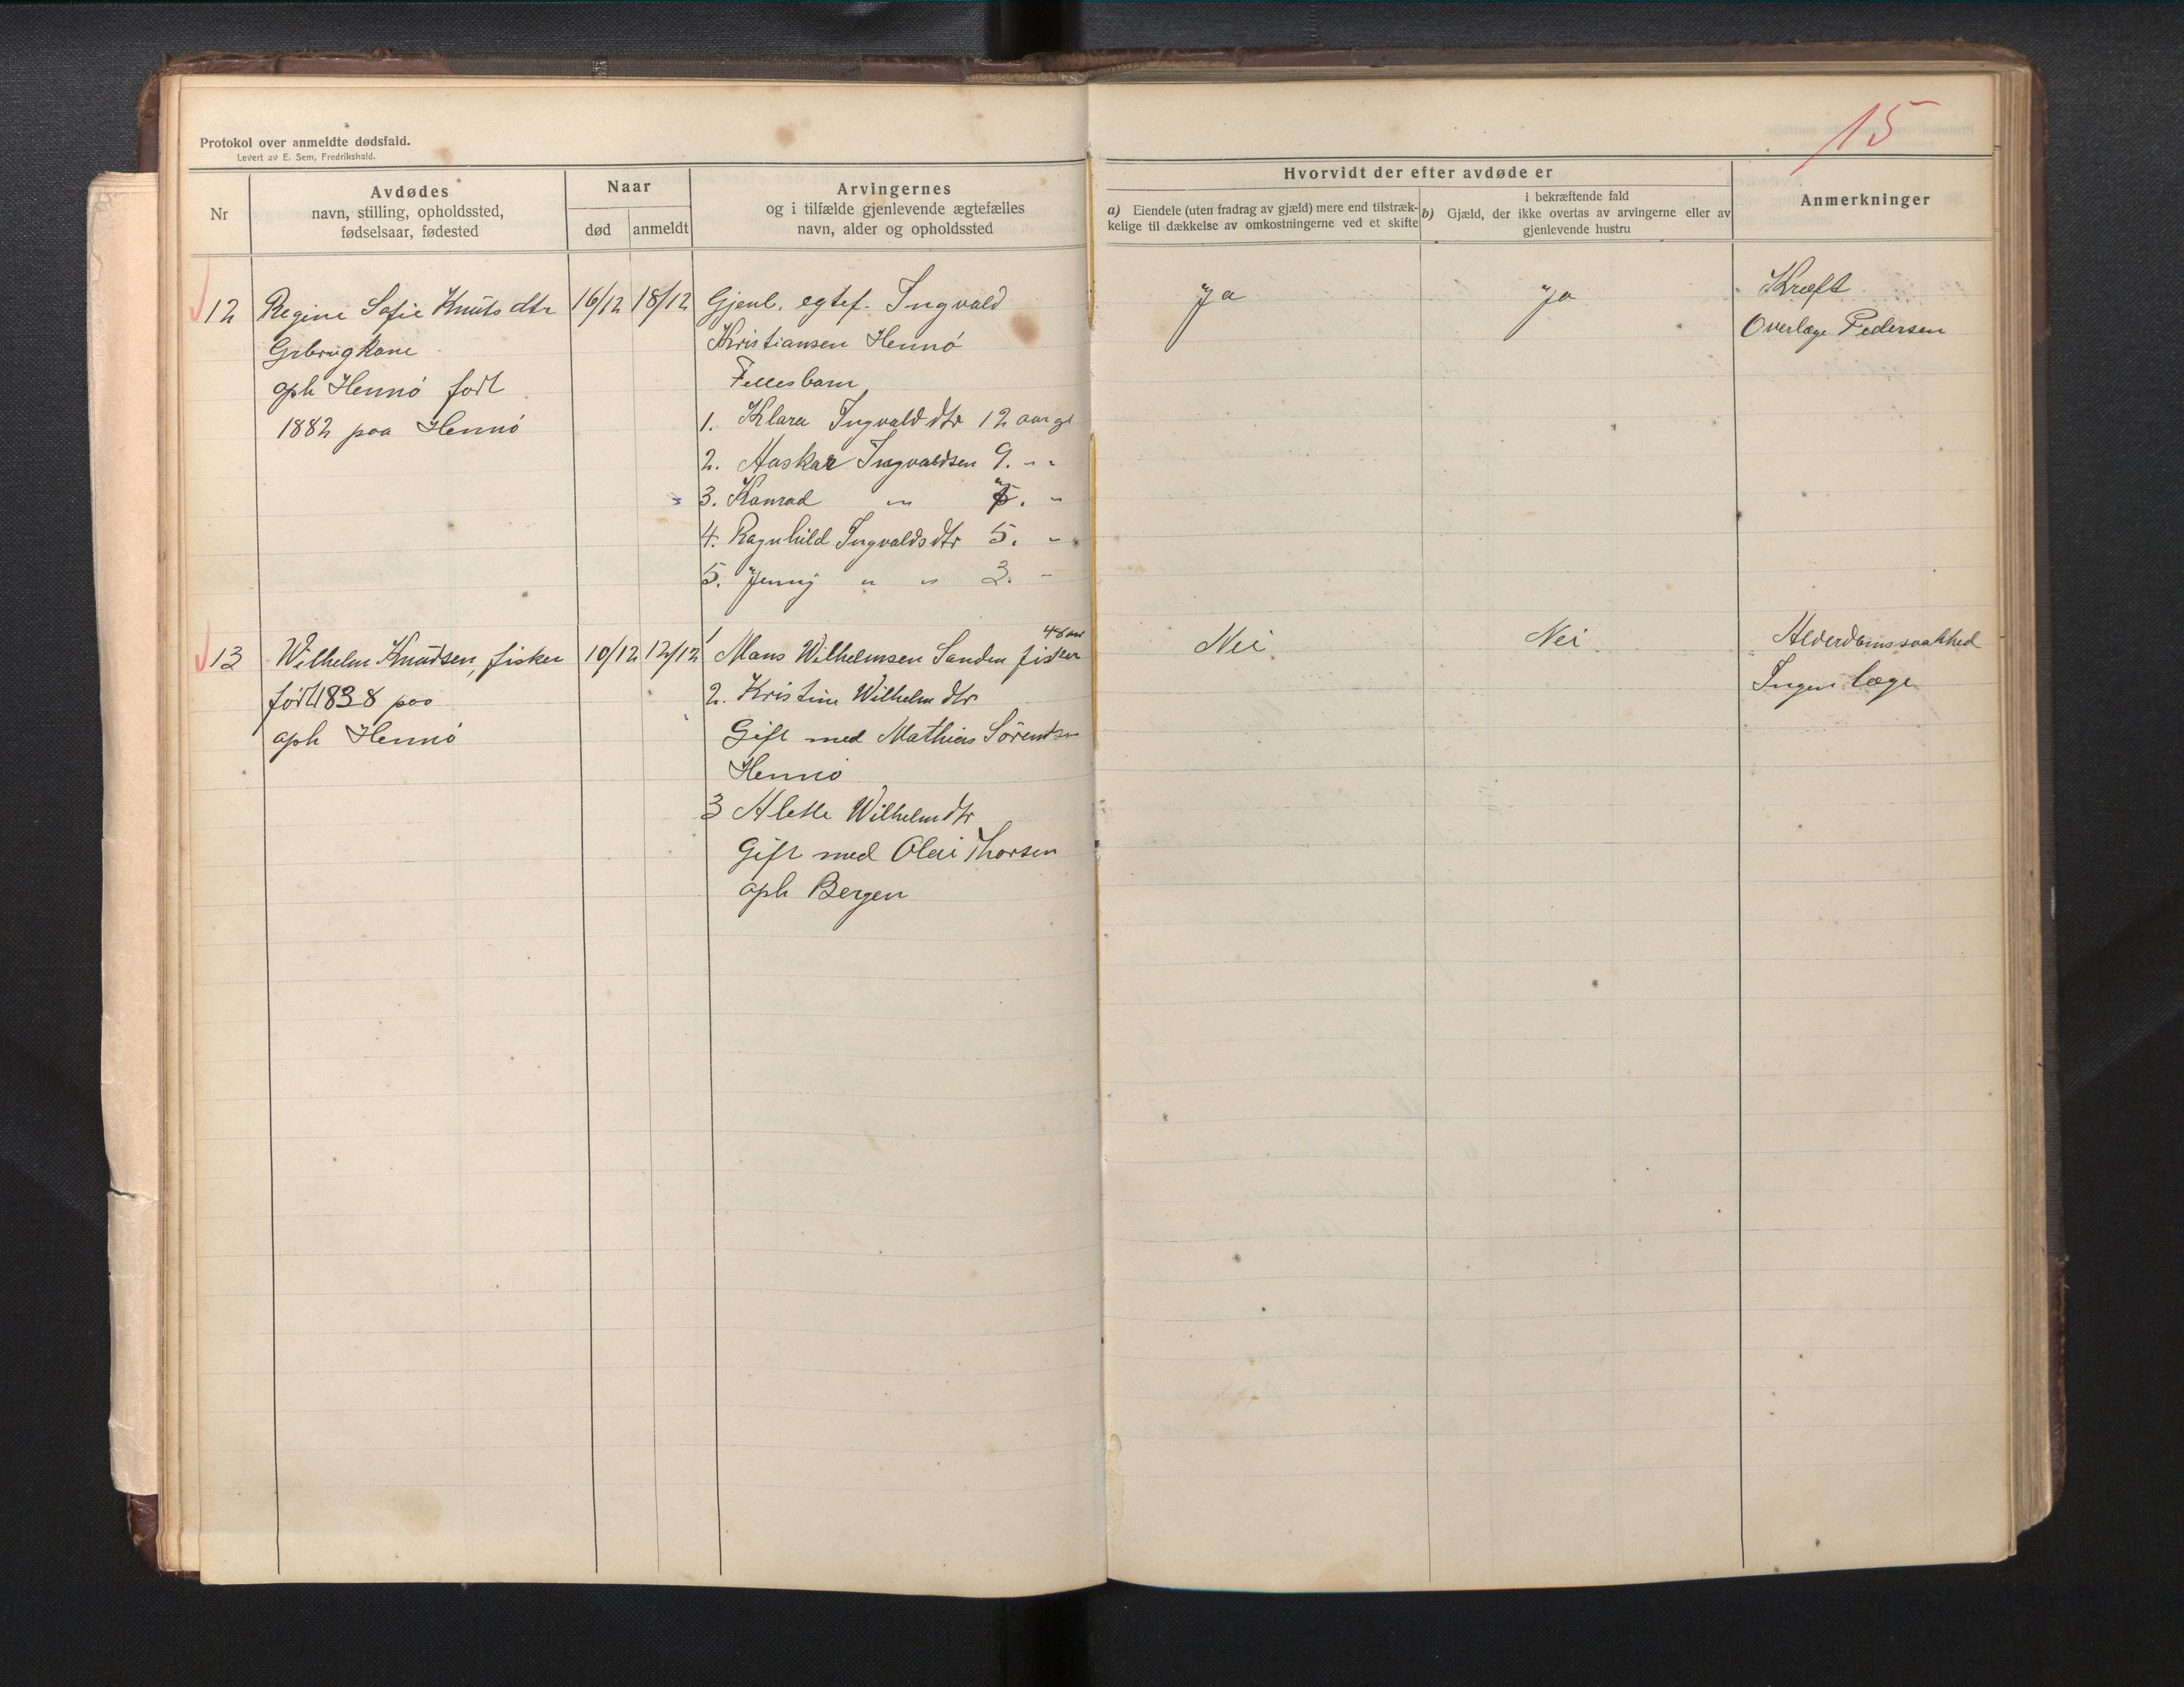 15
Protokol over anmeldte dødsfald.
Levert av E. Sem, Fredrikshald.
Nr
Avdødes
navn, stilling, opholdssted,
fødselsaar, fødested
Naar
død
anmeldt
Arvingernes
og i tilfælde gjenlevende ægtefælles
navn, alder og opholdssted
Hvorvidt der efter avdøde er
a) Eiendele (uten fradrag av gjæld) mere end tilstræk-
kelige til dækkelse av omkostningerne ved et skifte
i bekræftende fald
b) Gjæld, der ikke overtas av arvingerne eller av
gjenlevende hustru
Anmerkninger
12
Regine Sofie Knutsdtr
Grbrugkone
oph Hennö födt
1882 paa Hennö
16/12
18/12
Gjenl. egtef. Ingvald
Kristiansen Hennö
Fellesbarn
1. Klara Ingvalddtr 12 aar gl
2. Aaskar Ingvaldsen 9. " "
3. Konrad " . "
4. Ragnhild Ingvaldsdtr 5. "
5. Jenny " " 3. "
Ja
Ja
Kræft
Overlæge Pedersen
13
Wilhelm Knudsen, fisker
födt 1838 paa
oph Hennö
10/12
12/12
48 aar
1 Mons Wilhelmsen Sanden fisker
2. Kristine Wilhelmdtr
Gift med Mathias Sörensen
Hennö
3 Alette Wilhelmdtr
Gift med Olai Thorsen
oph Bergen
Nei
Nei
Alderdomssvakhed
Ingen læge